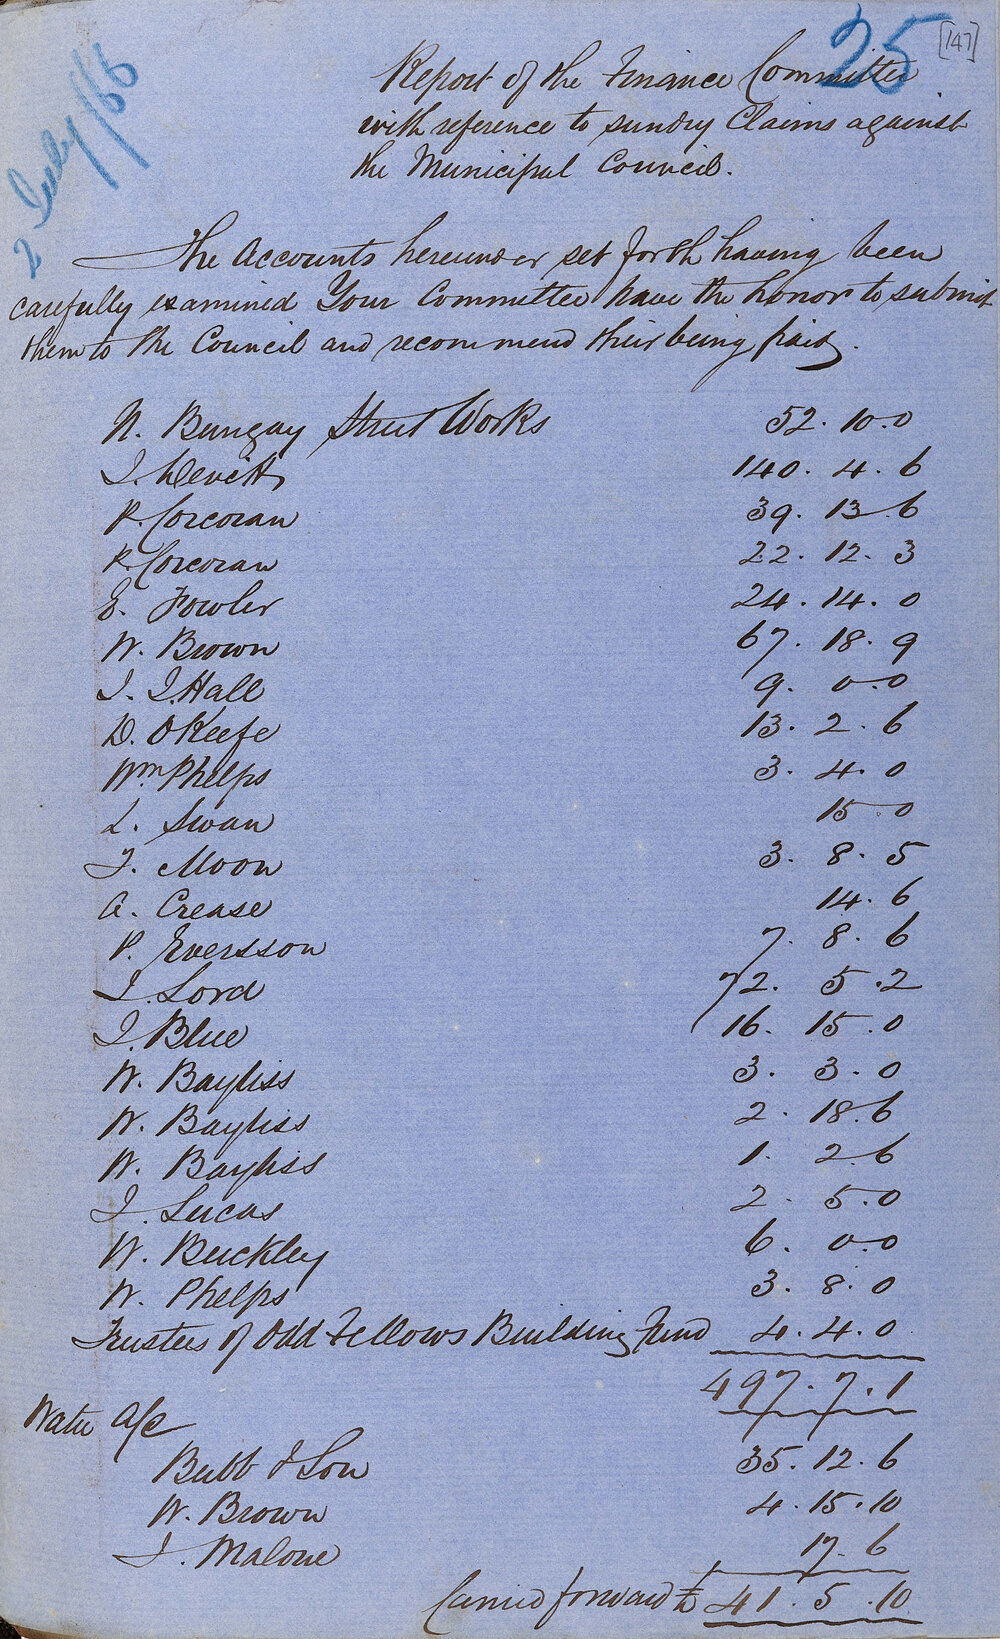 25
[147]
2 July/66
Report of the Finance Committee
with reference to sundry Claims against
the Municipal Council.
The Accounts hereunder set forth having been
carefully examined Your Committee have the honor to submit
them to the Council and recommend their being paid.
N. Bungay Street Works 52. 10. 0
J. Devitt 140. 4. 6
P. Corcoran 39. 13. 6
P. Corcoran 22. 12. 3
E. Fowler 24. 14. 0
W. Brown 67. 18. 9
J. J. Hall 9. 0. 0
D. OKeefe 13. 2. 6
Wm Phelps 3. 4. 0
L. Swan 15. 0
J. Moon 3. 8. 5
A. Crease 14. 6
P. Eversson 7. 8. 6
J. Lord 72. 5. 2
J. Blue 16. 15. 0
W. Bayliss 3. 3. 0
W. Bayliss 2. 18. 6
W. Bayliss 1. 2. 6
J. Lucas 2. 5. 0
W. Buckley 6. 0. 0
W. Phelps 3. 8. 0
Trustees of Odd Fellows Building Fund 4. 4. 0
497. 7. 1
Water a/c
Bubb & Son 35. 12. 6
W. Brown 4. 15. 10
J. Malone 17. 6
Carried forward £ 41. 5. 10